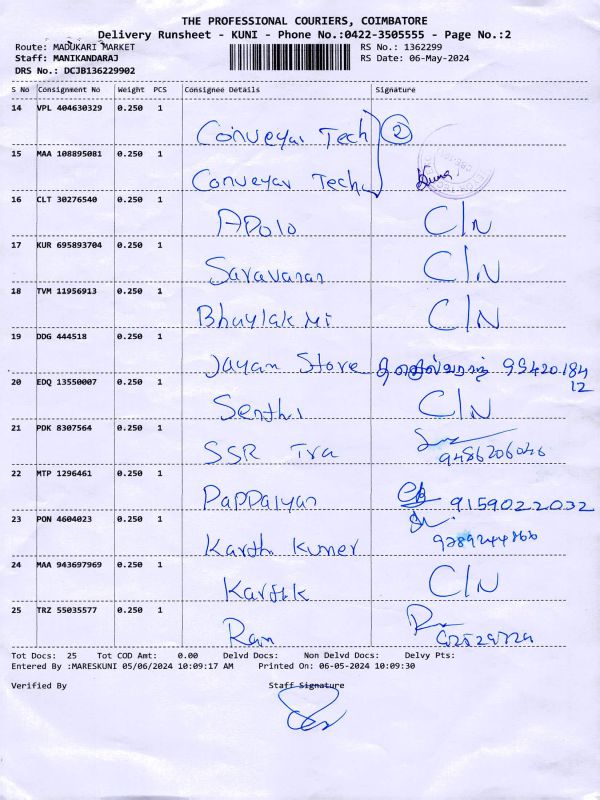 THE PROFESSIONAL COURIERS, COIMBATORE
Delivery Runsheet - KUNI - Phone No.:0422-3505555 - Page No.:2
Route: MADUKARI MARKET RS No.: 1362299
Staff: MANIKANDARAJ RS Date: 06-May-2024
DRS No.: DCJB136229902
S No Consignment No Weight PCS Consignee Details Signature
14 VPL 404630329 0.250 1 Conveyar Tech 2
15 MAA 108895081 0.250 1 Conveyar Tech
16 CLT 30276540 0.250 1 Apolo C/N
17 KUR 695893704 0.250 1 Saravanan C/N
18 TVM 11956913 0.250 1 Bhaylakmi C/N
19 DDG 444518 0.250 1 Jayam Store 99420184
12
20 EDQ 13550007 0.250 1 Senthi C/N
21 PDK 8307564 0.250 1 SSR Tra 9486206046
22 MTP 1296461 0.250 1 Pappaiyan 9159022032
23 PON 4604023 0.250 1 Karthi Kumer
24 MAA 943697969 0.250 1 Karthik C/N
25 TRZ 55035577 0.250 1 Ram
Tot Docs: 25 Tot COD Amt: 0.00 Delvd Docs: Non Delvd Docs: Delvy Pts:
Entered By :MARESKUNI 05/06/2024 10:09:17 AM Printed On: 06-05-2024 10:09:30
Verified By Staff Signature